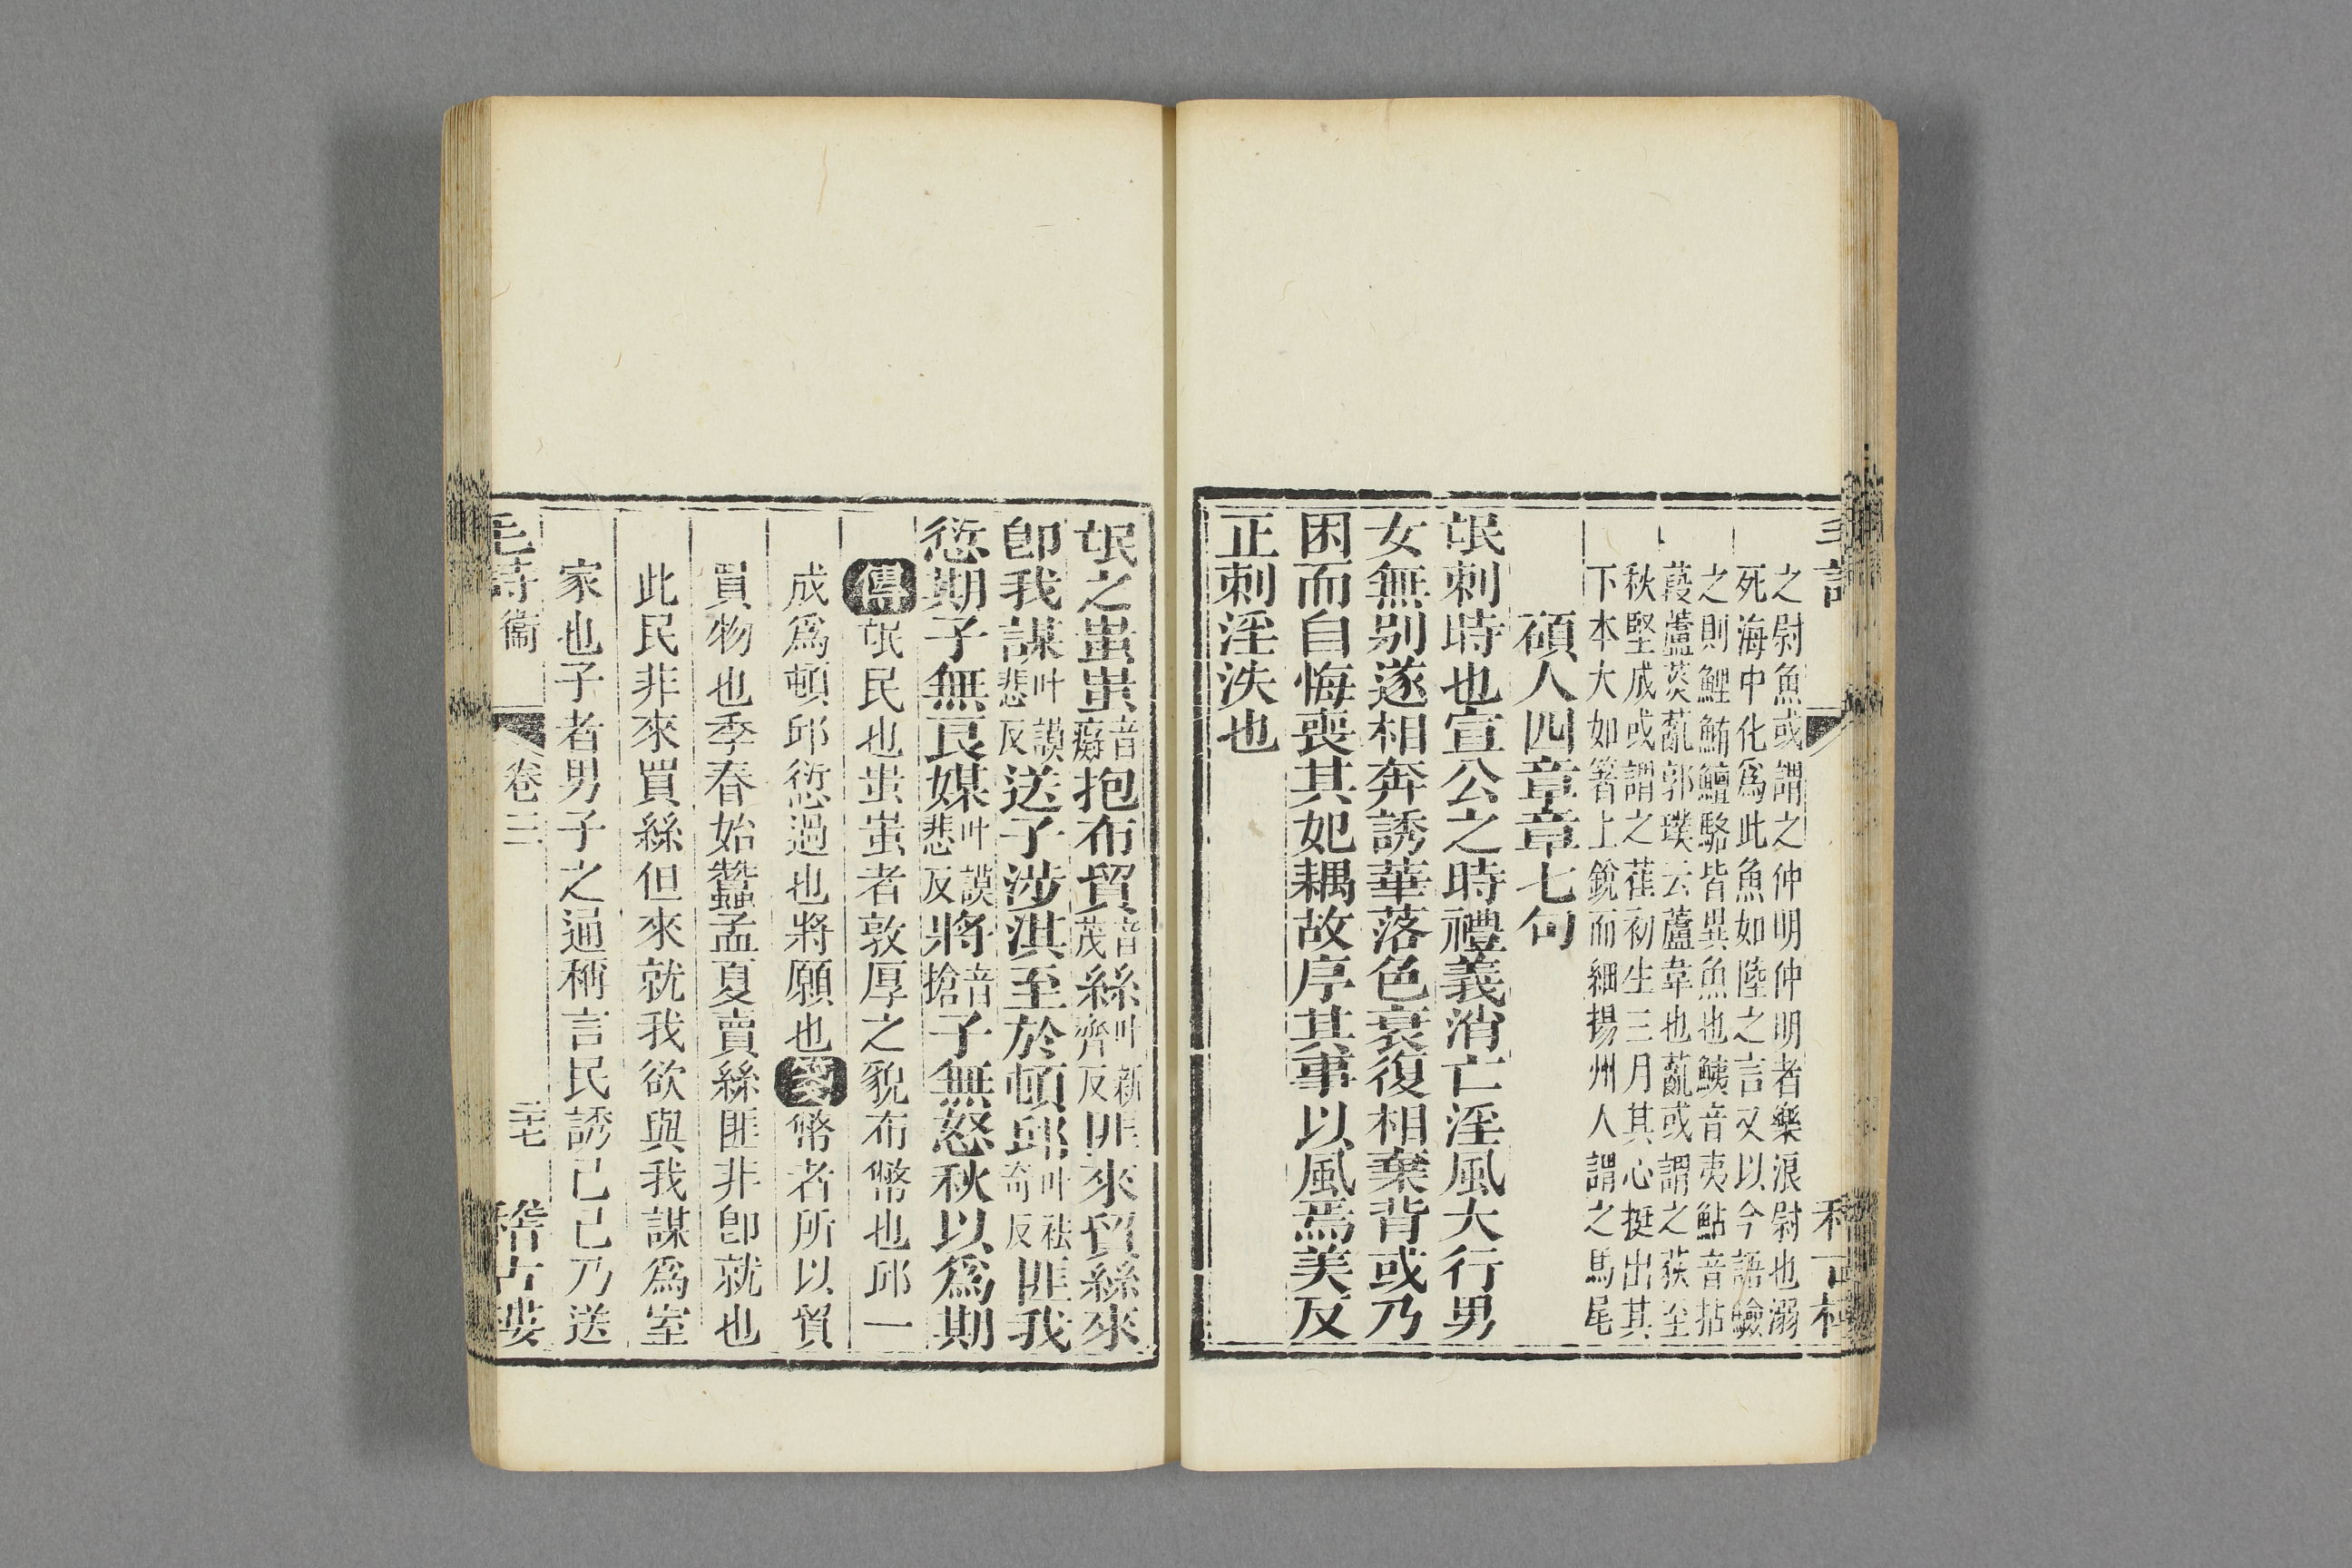 之尉魚或謂之仲明仲明者樂浪尉也溺
死海中化爲此魚如陸之言又以今語驗
之則鯉鮪鱣鮥皆異魚也鮧音夷鮎音拈
葭蘆菼薍郭璞云蘆葦也薍或謂之荻至
秋堅成或謂之萑初生三月其心挺出其
下本大如箸上銳而細揚州人謂之馬尾
碩人四章章七句
氓刺時也宣公之時禮義消亡淫風大行男
女無別遂相奔誘華落色衰復相棄背或乃
困而自悔喪其妃耦故序其事以風焉美反
正刺淫泆也
氓之蚩蚩音癡抱布貿音茂絲叶新齊反匪來貿絲來
卽我謀叶謨悲反送子涉淇至於頓邱叶祛奇反匪我
愆期子無良媒叶謨悲反將音搶子無怒秋以爲期
傳氓民也蚩蚩者敦厚之貌布幣也邱一
成爲頓邱愆過也將願也箋幣者所以貿
買物也季春始蠶孟夏賣絲匪非卽就也
此民非來買絲但來就我欲與我謀爲室
家也子者男子之通稱言民誘己己乃送
毛詩 衞 卷三 二七 稽古樓